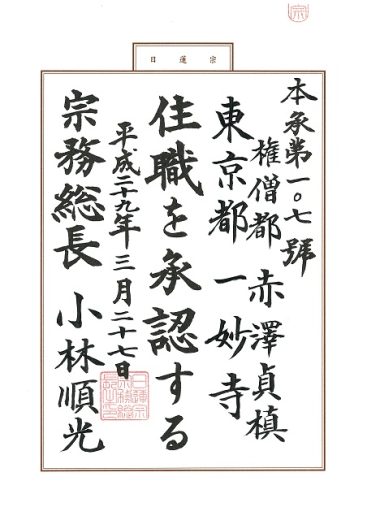 宗
日蓮宗
本承第一〇七號
権僧都 赤澤貞槙
東京都 一妙寺
住職を承認する
平成二十九年三月二十七日
宗務総長 小林順光